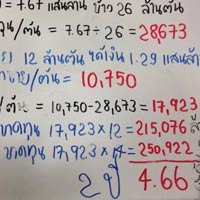 = 7.67 แสนล้าน ข้าว 26 ล้านตัน
ทุน/ตัน = 7.67÷26 = 28,673
12 ล้านตัน ได้เงิน 1.29 แสนล้า
ขาย/ตัน = 10,750
/ตัน = 10,750-28,673 = 17,923
ขาดทุน 17,923×12 = 215,076 ล้
ขาดทุน 17,923×14 = 250,922
2 ปี 4.66